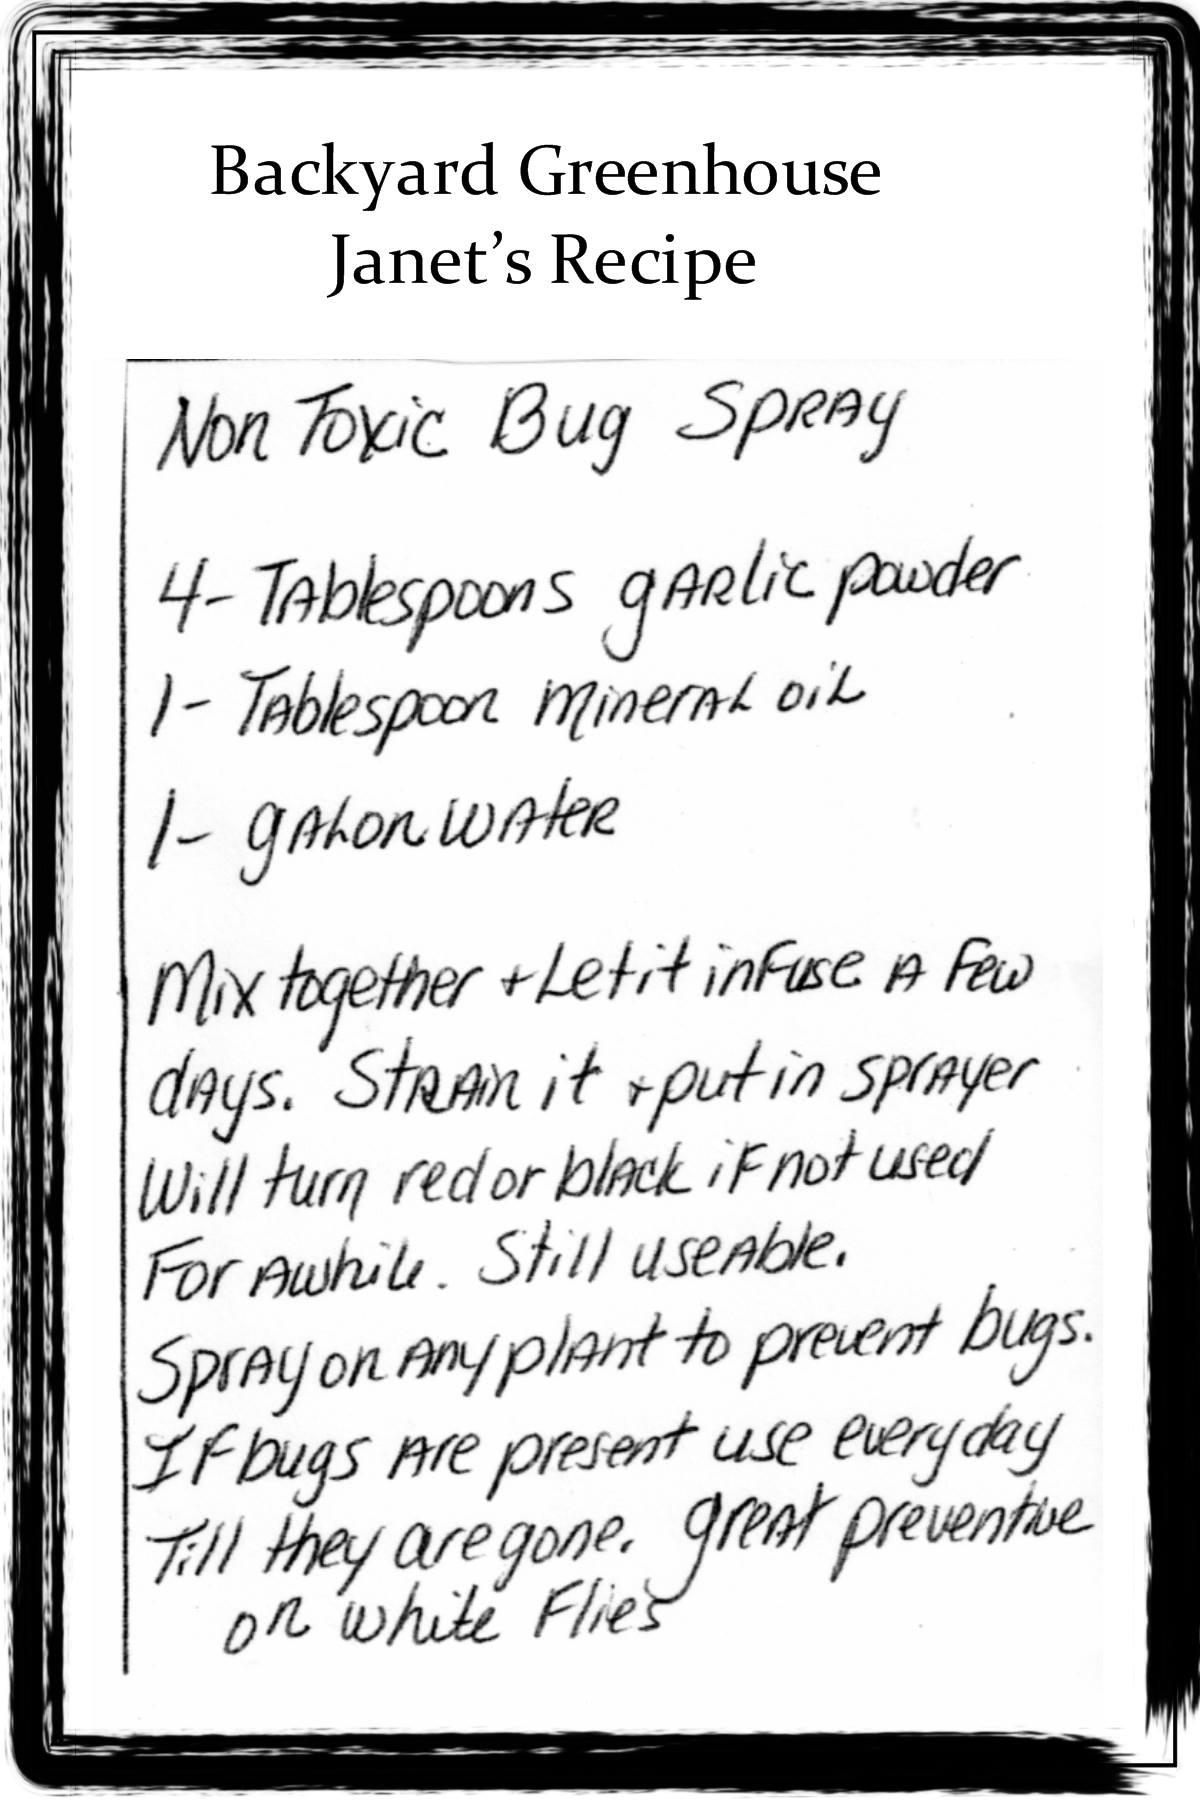 Backyard Greenhouse
Janet's Recipe
Non Toxic Bug Spray
4- Tablespoons garlic powder
1- Tablespoon mineral oil
1- galon water
Mix together + Let it infuse a few
days. Strain it + put in sprayer
Will turn red or black if not used
For awhile. Still useable.
Spray on any plant to prevent bugs.
If bugs are present use everyday
Till they are gone. great preventive
on white Flies